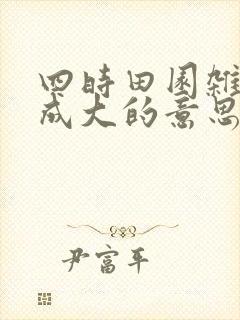 四時田園雜
成大的意思
尹富平